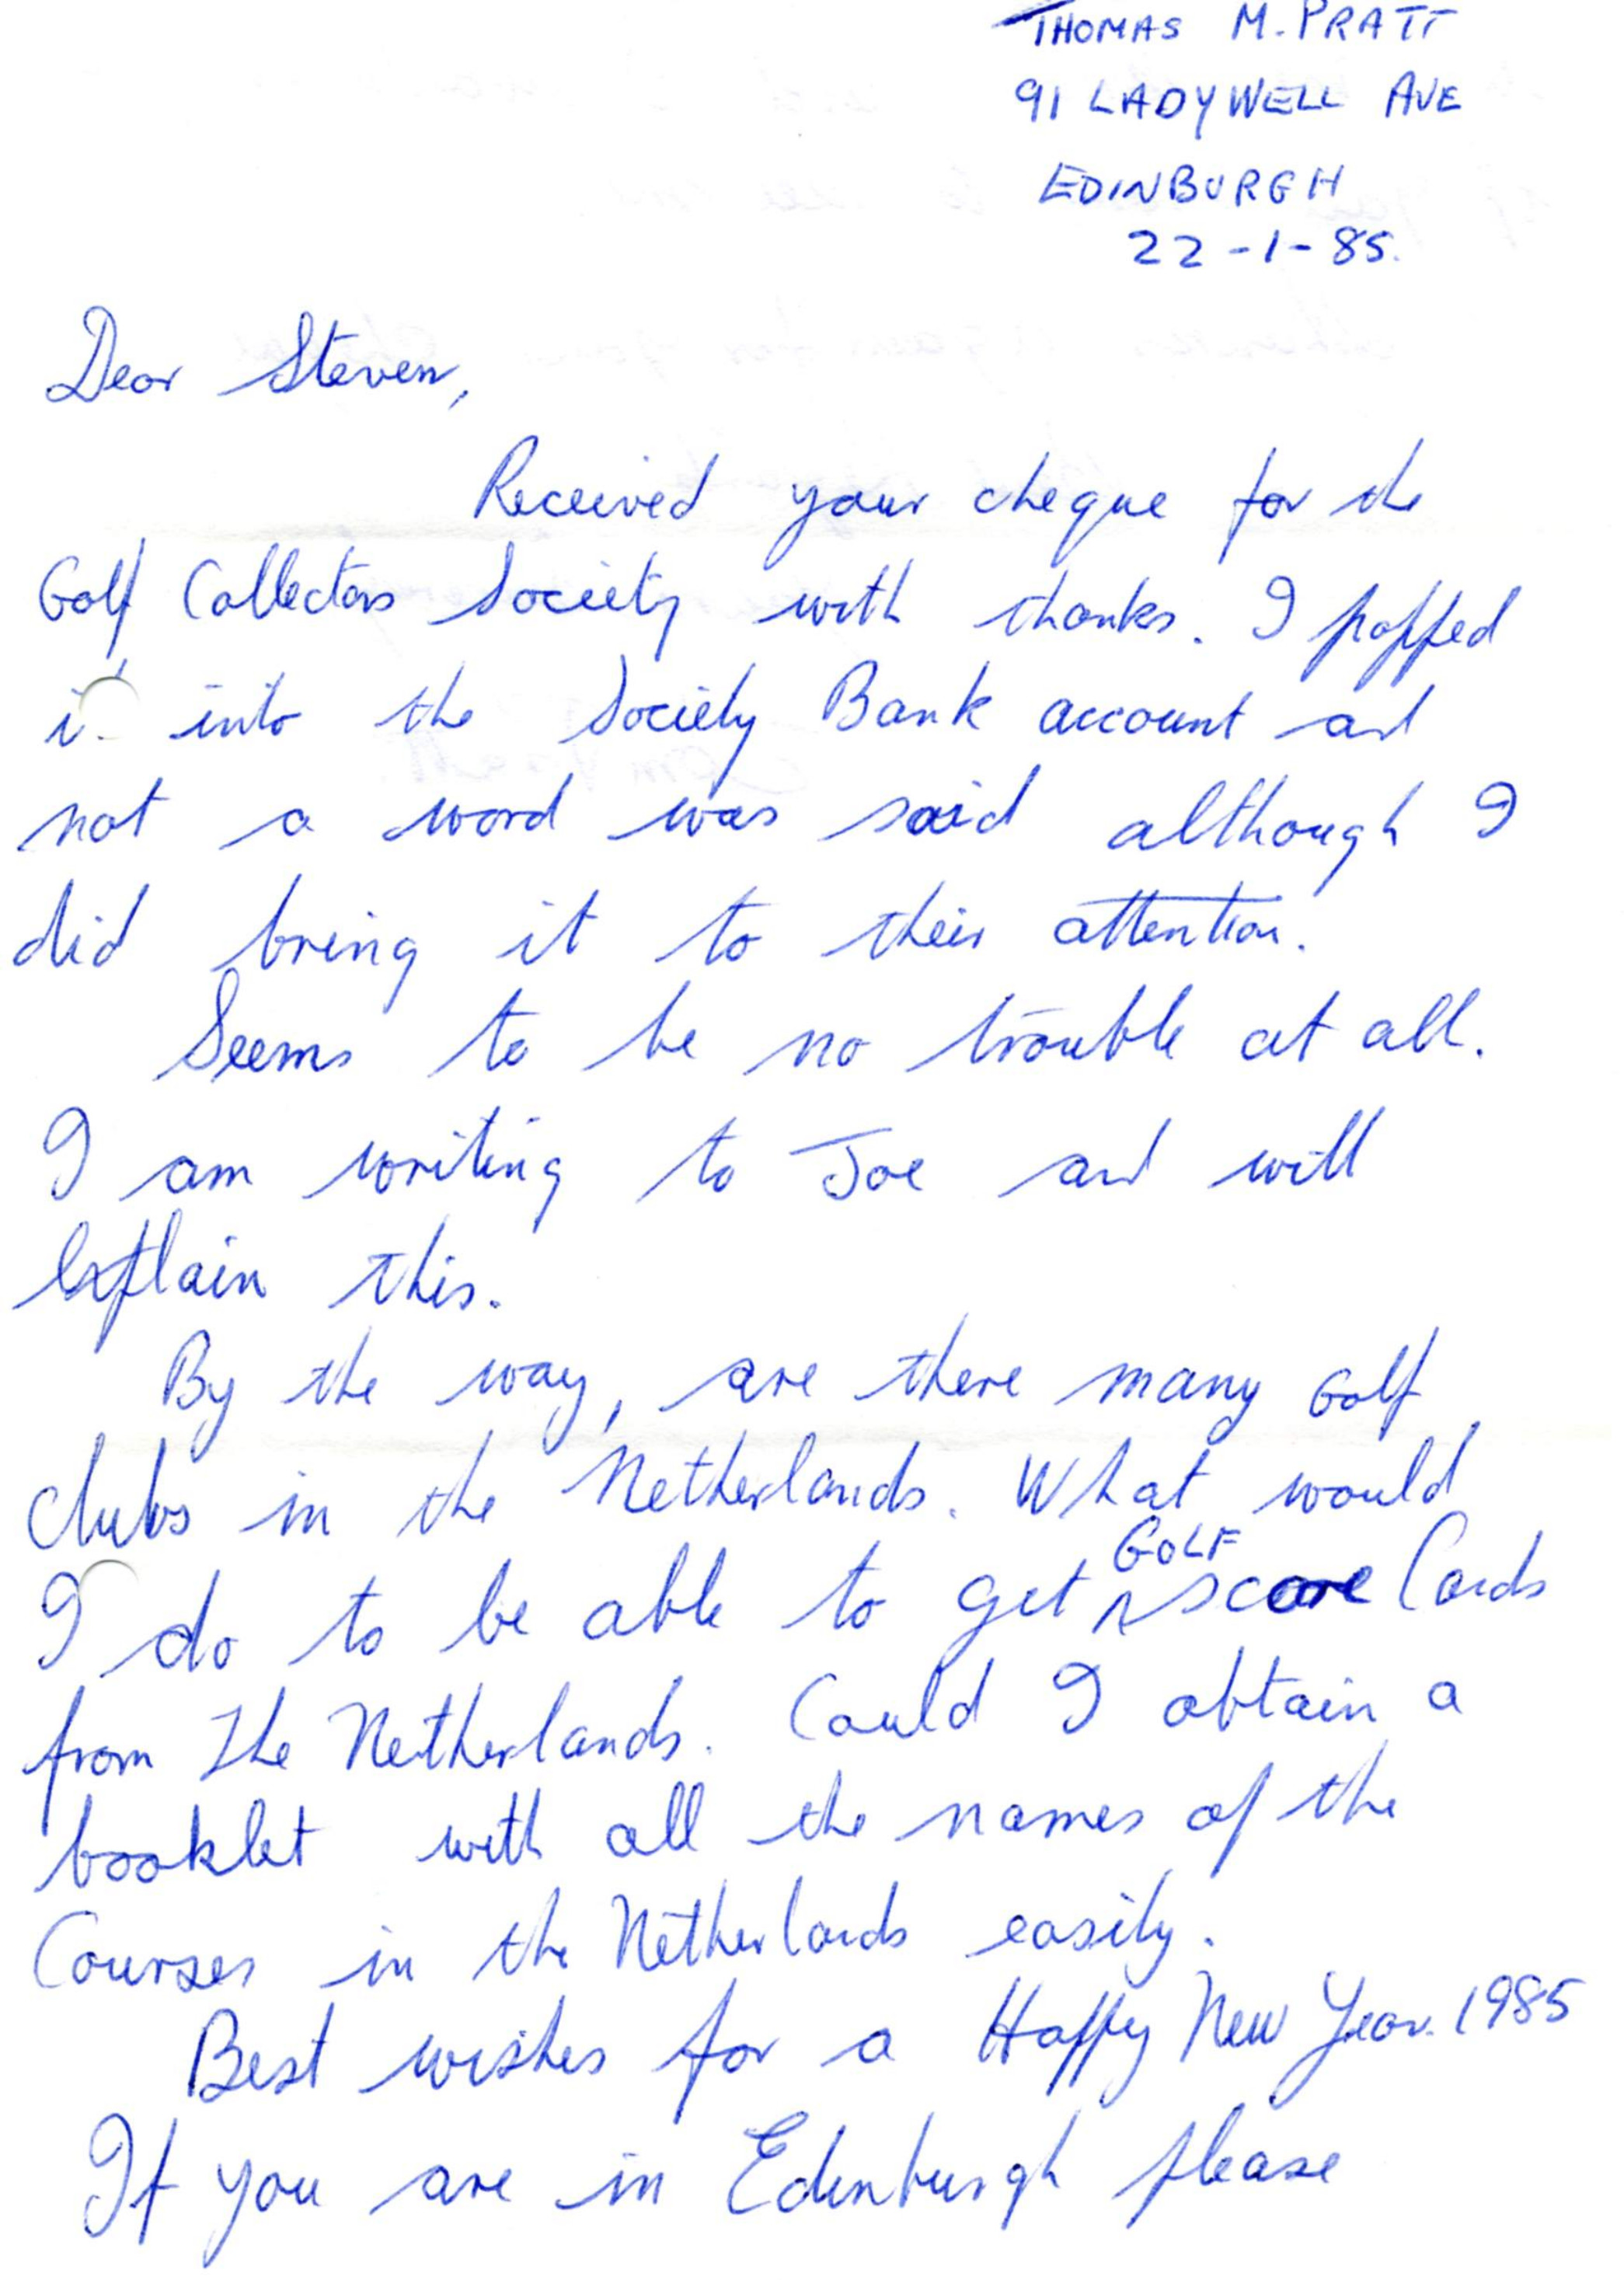 THOMAS M. PRATT
91 LADYWELL AVE
EDINBURGH
22-1-85.
Dear Steven,
Received your cheque for the
Golf Collectors Society with thanks. I popped
it into the Society Bank account and
not a word was said although I
did bring it to their attention.
Seems to be no trouble at all.
I am writing to Joe and will
explain this.
By the way, are there many Golf
Clubs in the Netherlands. What would
GOLF
I do to be able to get score Cards
from the Netherlands. Could I obtain a
booklet with all the names of the
Courses in the Netherlands easily.
Best wishes for a Happy New Year. 1985
If you are in Edinburgh please